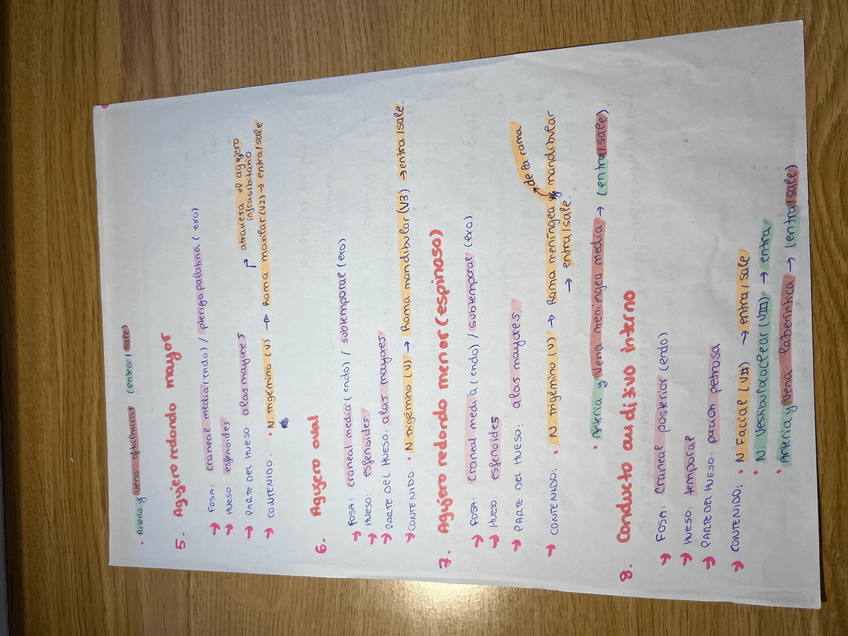 · Arteria y vena oftálmicas (entra/sale)
5. Agujero redondo mayor
→ FOSA: craneal media (endo) / pterigopalatina (exo)
→ HUESO: esfenoides
→ PARTE DEL HUESO: alas mayores
→ atraviesa el agujero infraorbitario
→ CONTENIDO: · N. trigémino (V) → Rama maxilar (V2) → entra/sale
6. Agujero oval
→ FOSA: craneal media (endo) / subtemporal (exo)
→ HUESO: esfenoides
→ PARTE DEL HUESO: alas mayores
→ CONTENIDO: · N. trigémino (V) → Rama mandibular (V3) → entra/sale.
7. Agujero redondo menor (espinoso)
→ FOSA: craneal media (endo) / subtemporal (exo)
→ HUESO: esfenoides
→ PARTE DEL HUESO: alas mayores
de la rama
→ CONTENIDO: · N. trigémino (V) → Rama meníngea mandibular
→ entra/sale.
· Arteria y vena meníngea media → (entra/sale)
8. Conducto auditivo interno
→ FOSA: craneal posterior (endo)
→ HUESO: temporal
→ PARTE DEL HUESO: porción petrosa
→ CONTENIDO: · N. Facial (VII) → entra/sale
· N. Vestibulococlear (VIII) → entra
· Arteria y vena laberíntica → (entra/sale)